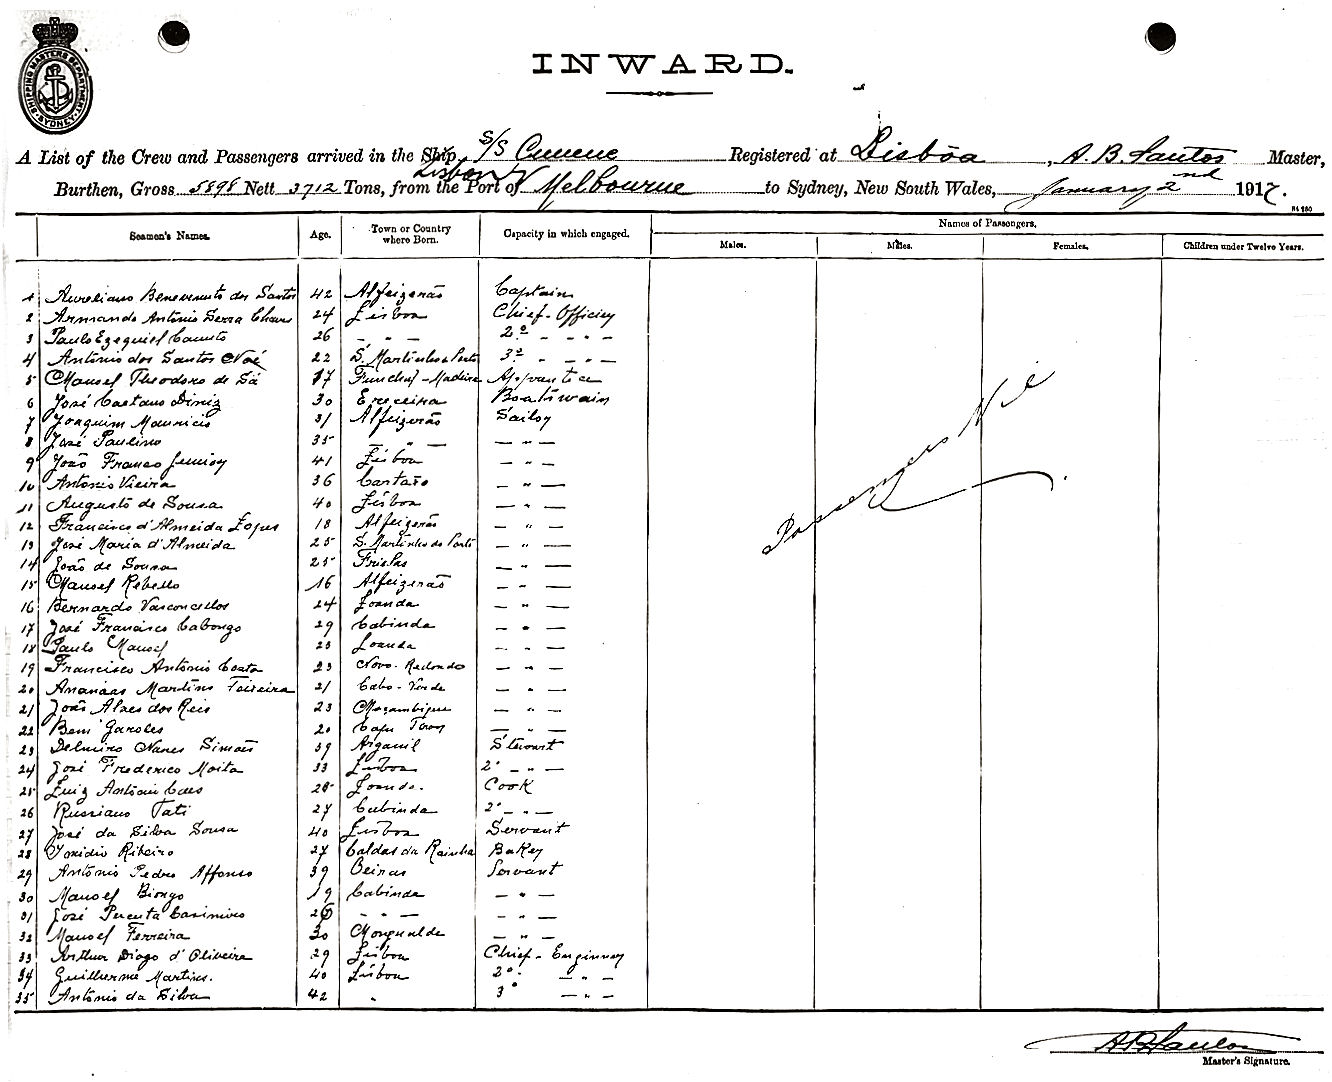 SHIPPING MASTERS DEPARTMENT SYDNEY
INWARD.
A List of the Crew and Passengers arrived in the Ship S/S Cunene Registered at Lisbôa, A. B. Santos Master,
Burthen, Gross 5898 Nett 3712 Tons, from the Port of Lisbon Melbourne to Sydney, New South Wales, January 2nd 1917.
Seamen's Names. Age. Town or Country where Born. Capacity in which engaged. Names of Passengers.
Males. Males. Females. Children under Twelve Years.
1 Aureliano Benevenuto dos Santos 42 Alfeizerão Captain
2 Armando Antonio Serra Chaves 24 Lisboa Chief-Officer
3 Paulo Ezequiel Canuto 26 - " - 2º - " - -
4 António dos Santos Noé 22 S. Martinho do Porto 3º " - " -
5 Manoel Theodoro de Sá 17 Funchal-Madeira
6 José Caetano Diniz 30 Ericeira Boatswain
7 Joaquim Mauricio 31 Alfeizerão Sailor
8 José Paulino 35 — " — — " —
9 João Franco Junior 41 Lisboa — " —
10 António Vieira 36 Cartaxo — " —
11 Augusto de Sousa 40 Lisboa — " —
12 Francisco d'Almeida Lopes 18 Alfeizerão — " —
13 José Maria d'Almeida 25 S. Martinho do Porto — " —
14 João de Sousa 25 — " —
15 Manoel Rebello 16 Alfeizerão — " —
16 Bernardo Vasconcellos 24 Loanda — " —
17 José Francisco Cabongo 29 Cabinda — " —
18 Paulo Manoel 23 Loanda — " —
19 Francisco António Costa 23 Novo-Redondo — " —
20 Ananias Martins Teixeira 21 Cabo-Verde — " —
21 João Alves dos Reis 23 Moçambique — " —
22 20 Cape Town — " —
23 Delmiro Nunes Simões 39 Arganil Stewart
24 José Frederico Moita 33 Lisboa 2º — " —
25 Luiz António 28 Loanda. Cook
26 Russiano Tati 27 Cabinda 2º — " —
27 José da Silva Sousa 40 Lisboa Servant
28 Ribeiro 27 Caldas da Rainha Baker
29 António Pedro Affonso 39 Oeiras Servant
30 Manoel Biongo 19 Cabinda — " —
31 José Casimiro 26 — " — — " —
32 Manoel Ferreira 30 Mangualde — " —
33 Arthur Diogo d'Oliveira 29 Lisboa Chief-Enginner
34 Guilherme Martins. 40 Lisboa 2º — " —
35 António da Silva 42 " 3º — " —
Passengers Nil
A B Santos
Master's Signature.